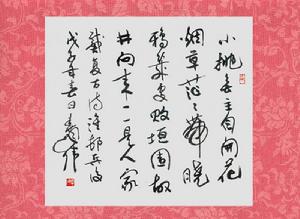 小桃无主自开花
烟草茫茫带晓
鸦几处败垣围故
井向来一一是人家
戴复古诗淮邨兵后
戊子年春日